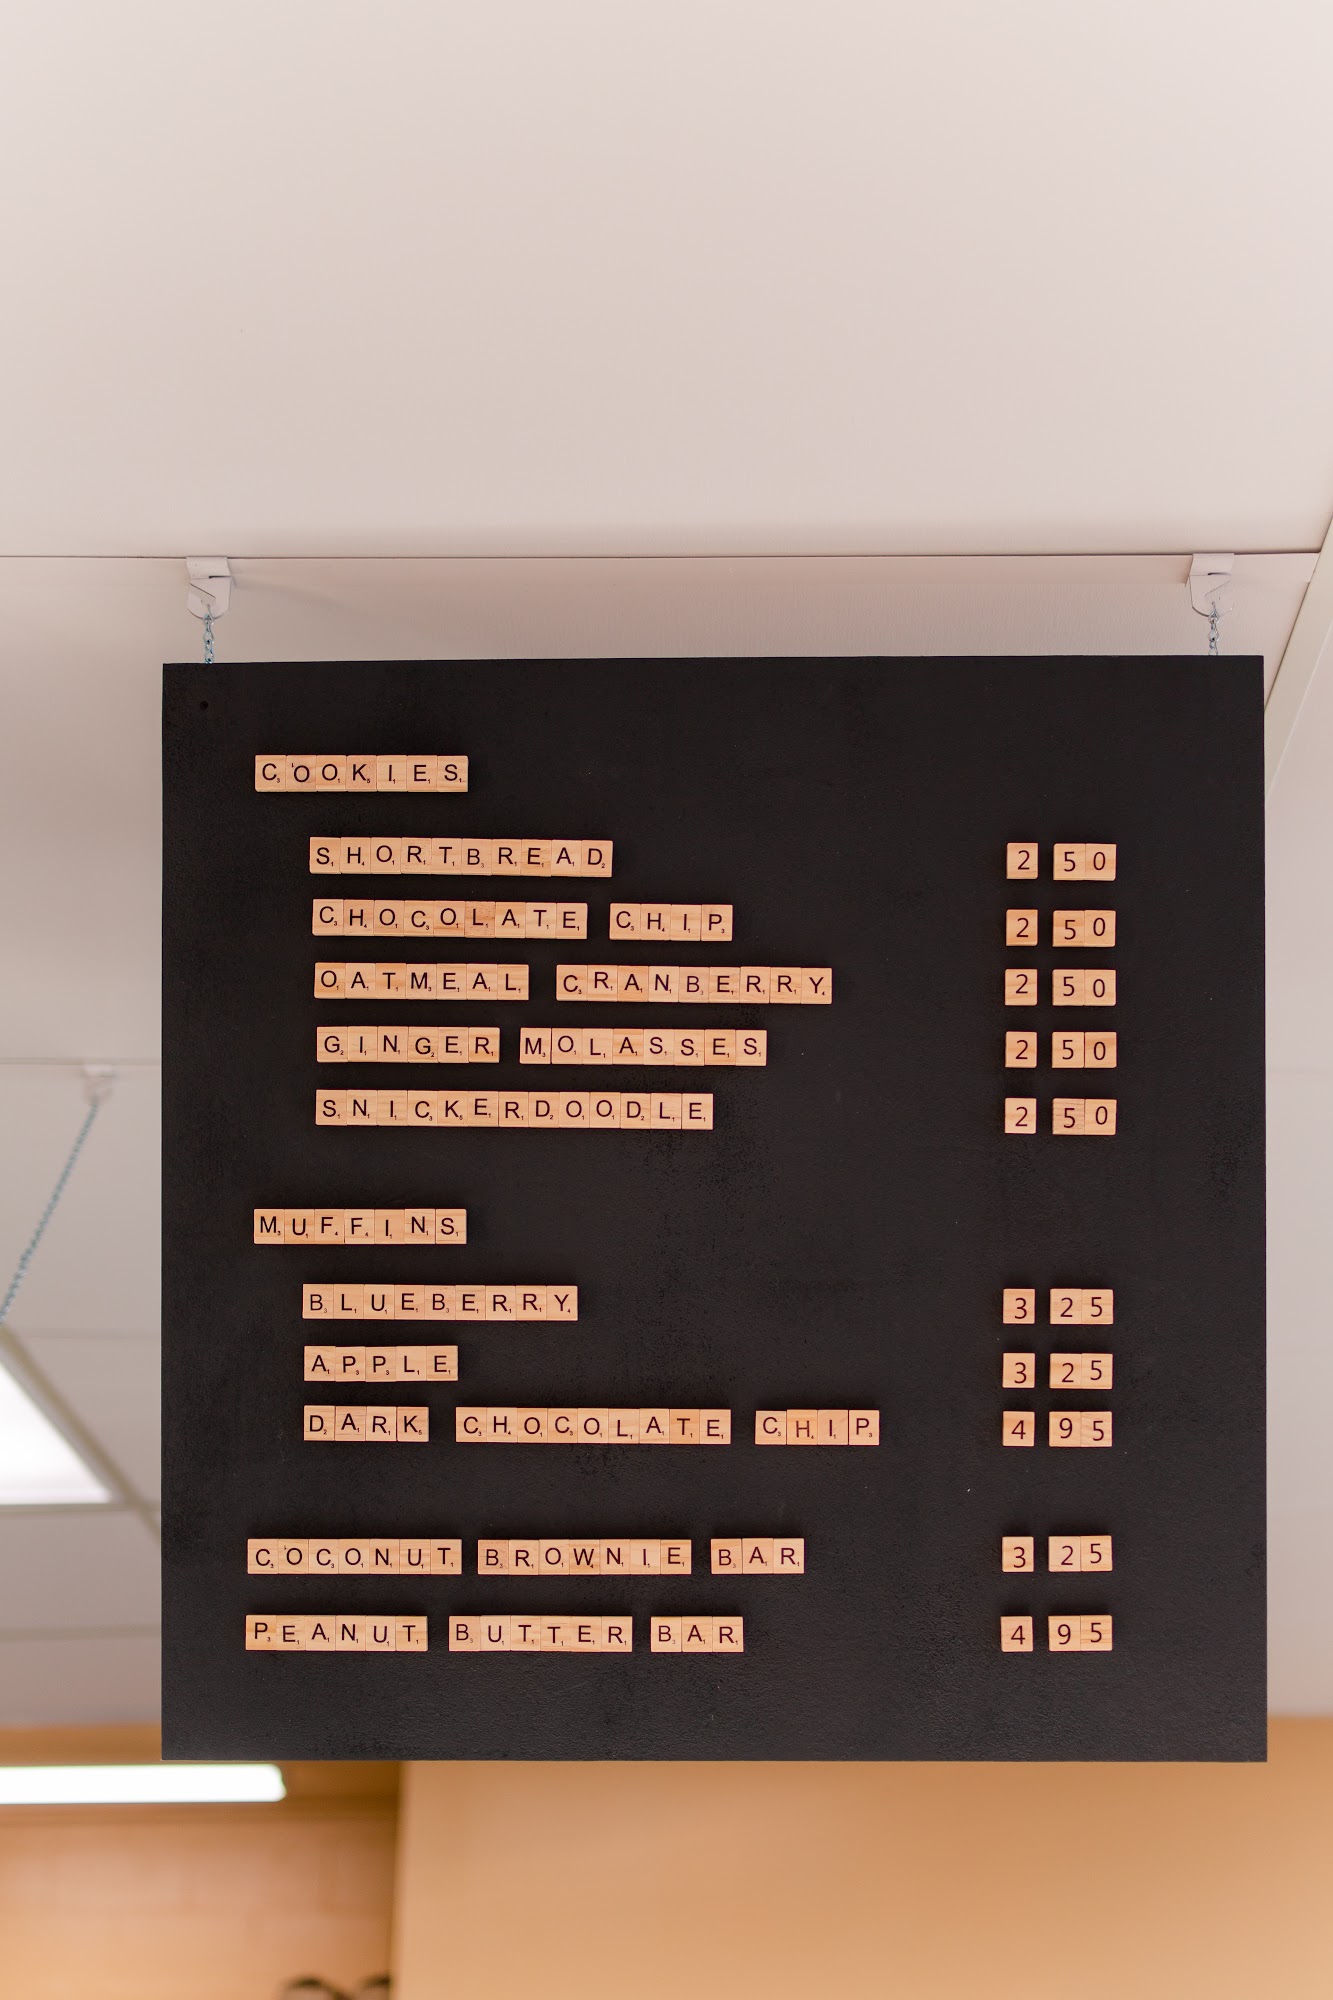 COOKIES
SHORTBREAD 2 50
CHOCOLATE CHIP 2 50
OATMEAL CRANBERRY 2 50
GINGER MOLASSES 2 50
SNICKERDOODLE 2 50
MUFFINS
BLUEBERRY 3 25
APPLE 3 25
DARK CHOCOLATE CHIP 4 95
COCONUT BROWNIE BAR 3 25
PEANUT BUTTER BAR 4 95